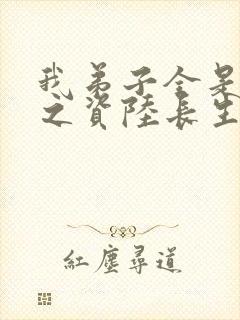 我弟子全是
之資陸長生
紅塵尋道